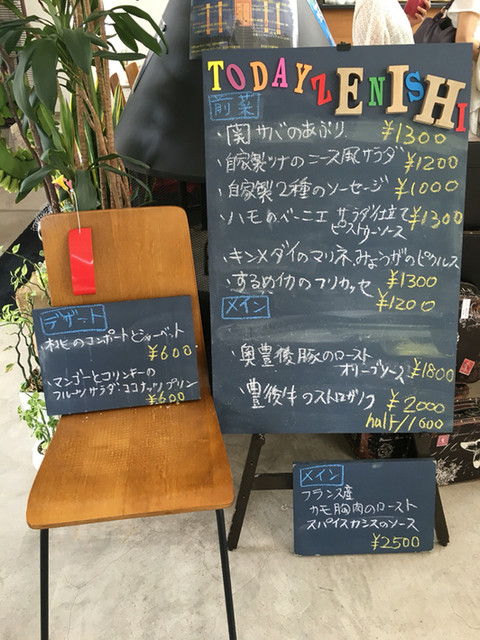 TODAYZENISHI
前菜
・関サバのあぶり ¥1300
・自家製ツナのニース風サラダ ¥1200
・自家製2種のソーセージ ¥1000
・ハモのベーニエ サラダ仕立て ¥1300
ピストゥーソース
・キンメダイのマリネ、みょうがのピクルス
¥1300
・するめイカのフリカッセ ¥1200
メイン
・奥豊後豚のロースト
オリーブソース ¥1800
・豊後牛のストロガノフ
¥2000
half/1600
デザート
・桃のコンポートとシャーベット
¥600
・マンゴーとコリンキーの
フルーツサラダココナッツプリン
¥600
メイン
フランス産
カモ胸肉のロースト
スパイスカシスのソース
¥2500